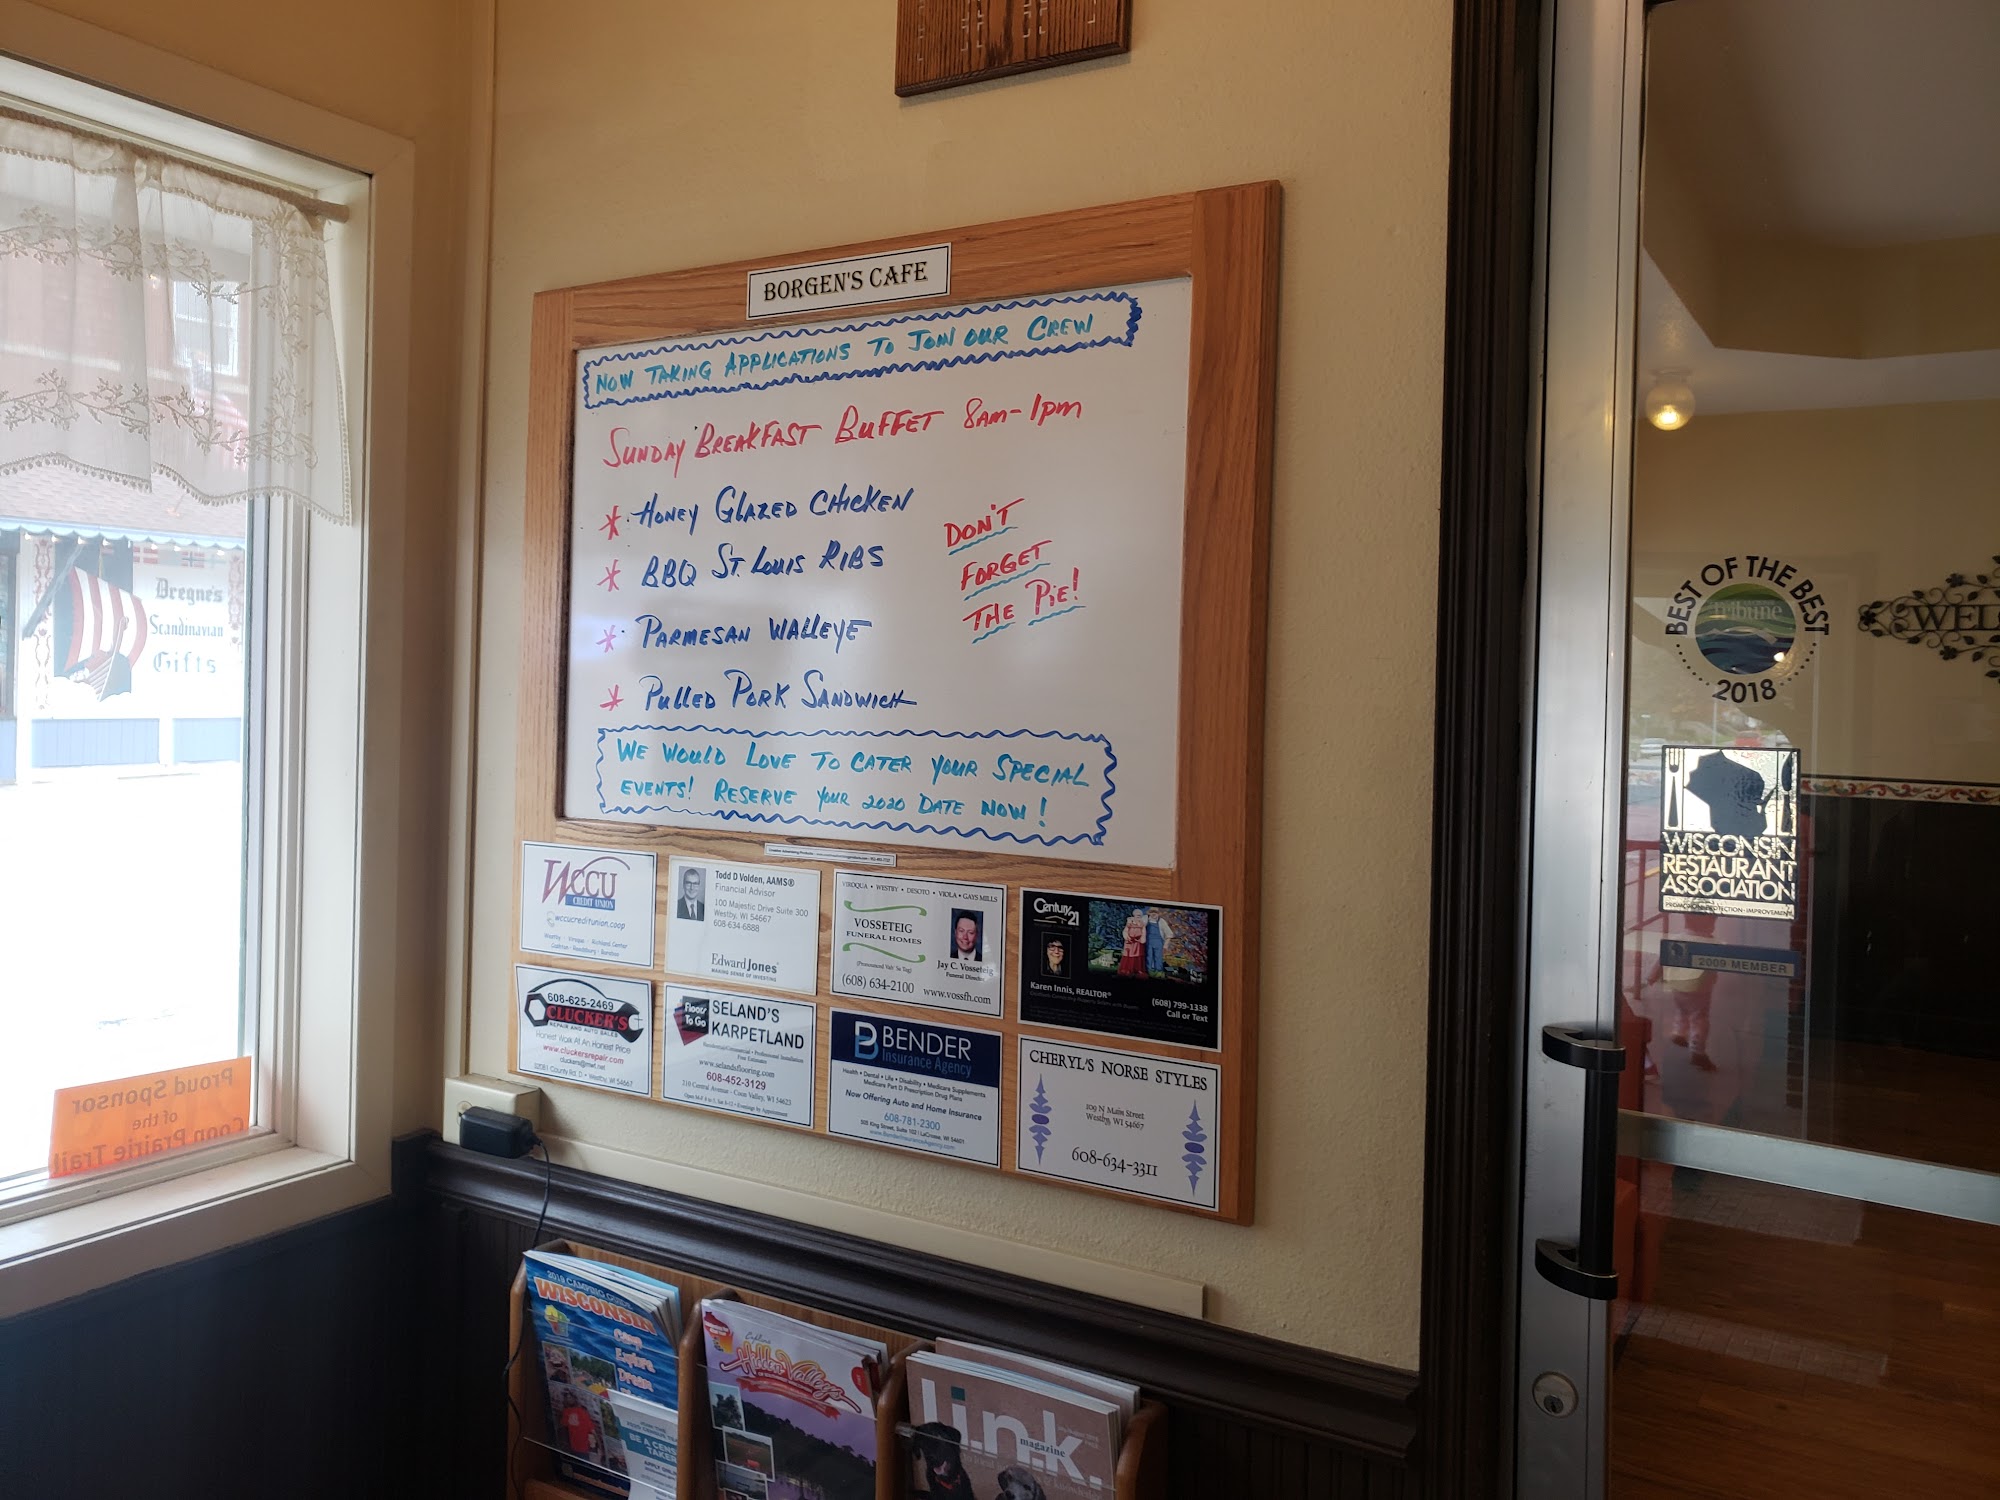 BORGEN'S CAFE
NOW TAKING APPLICATIONS TO JOIN OUR CREW
SUNDAY BREAKFAST BUFFET 8AM-1PM
* HONEY GLAZED CHICKEN
* BBQ ST. LOUIS RIBS
* PARMESAN WALLEYE
* PULLED PORK SANDWICH
DON'T
FORGET
THE PIE!
WE WOULD LOVE TO CATER YOUR SPECIAL
EVENTS! RESERVE YOUR 2020 DATE NOW!
WCCU
CREDIT UNION
wccucreditunion.coop
Todd D Volden, AAMS®
Financial Advisor
100 Majestic Drive Suite 300
Westby, WI 54667
608-634-6888
Edward Jones
MAKING SENSE OF INVESTING
VIROQUA • WESTBY • DESOTO • VIOLA • GAYS MILLS
VOSSETEIG
FUNERAL HOMES
(608) 634-2100
Jay C. Vosseteig
Funeral Director
www.vossfh.com
Century 21
Karen Innis, REALTOR®
(608) 799-1338
Call or Text
608-625-2469
CLUCKER'S
REPAIR AND AUTO SALES
Honest Work At An Honest Price
www.cluckersrepair.com
Floors
To Go
SELAND'S
KARPETLAND
www.selandsflooring.com
608-452-3129
210 Central Avenue - Coon Valley, WI 54623
BENDER
Insurance Agency
Health • Dental • Life • Disability • Medicare Supplements
Medicare Part D Prescription Drug Plans
Now Offering Auto and Home Insurance
608-781-2300
www.BenderInsuranceAgency.com
CHERYL'S NORSE STYLES
109 N Main Street
Westby, WI 54667
608-634-3311
Dregne's
Scandinavian
Gifts
Proud Sponsor
of the
Coon Prairie Trail
2019 CAMPING GUIDE
WISCONSIN
Camp
Explore
Dream
Explore
Hidden Valleys
l.i.n.k.
magazine
BEST OF THE BEST
tribune
2018
WISCONSIN
RESTAURANT
ASSOCIATION
PROMOTION • PROTECTION • IMPROVEMENT
2009 MEMBER